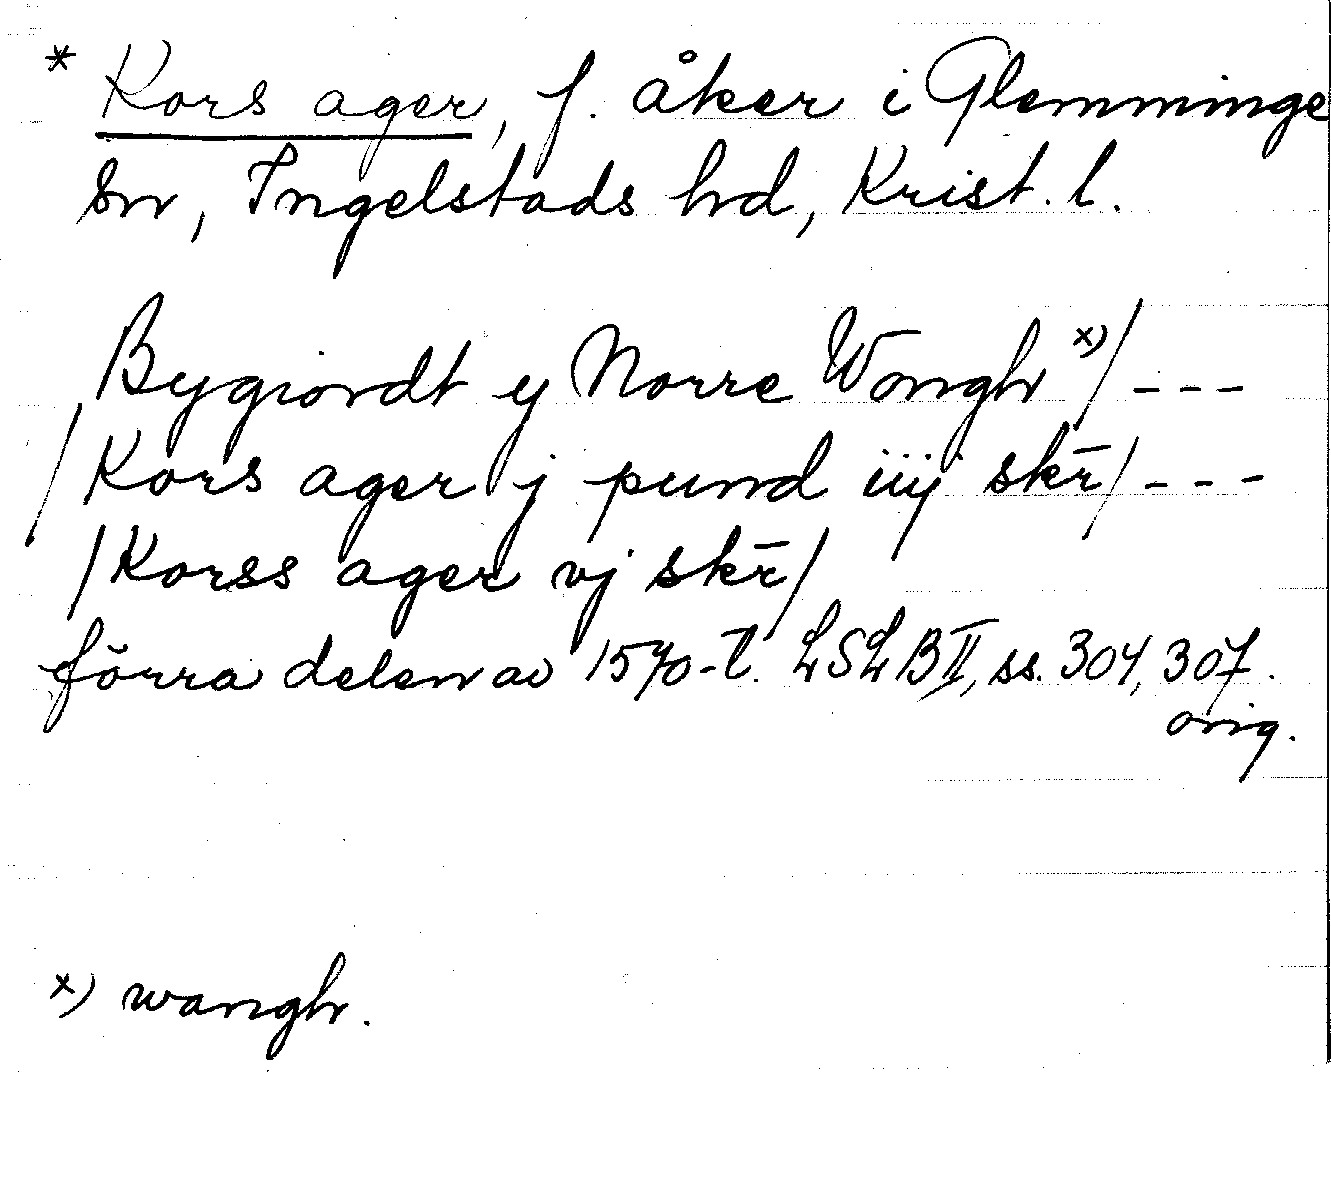 * Kors ager, f. åker i Glemminge
sn, Ingelstads hd, Krist. l.
Bygiordt y Norre Wongh x)/ ---
/Kors ager j pund iiij skr̄/ ---
/Korss ager vj skr̄/
förra delen av 1570-t. LSLB II, ss. 304, 307.
orig.
x) wangh.